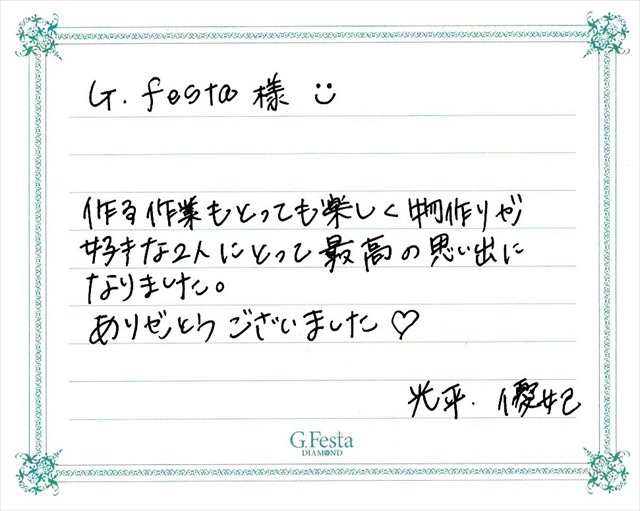 G. festa 様
作る作業もとっても楽しく物作りが
好きな2人にとって最高の思い出に
なりました。
ありがとうございました♡
光平. 優妃
G.Festa
DIAMOND